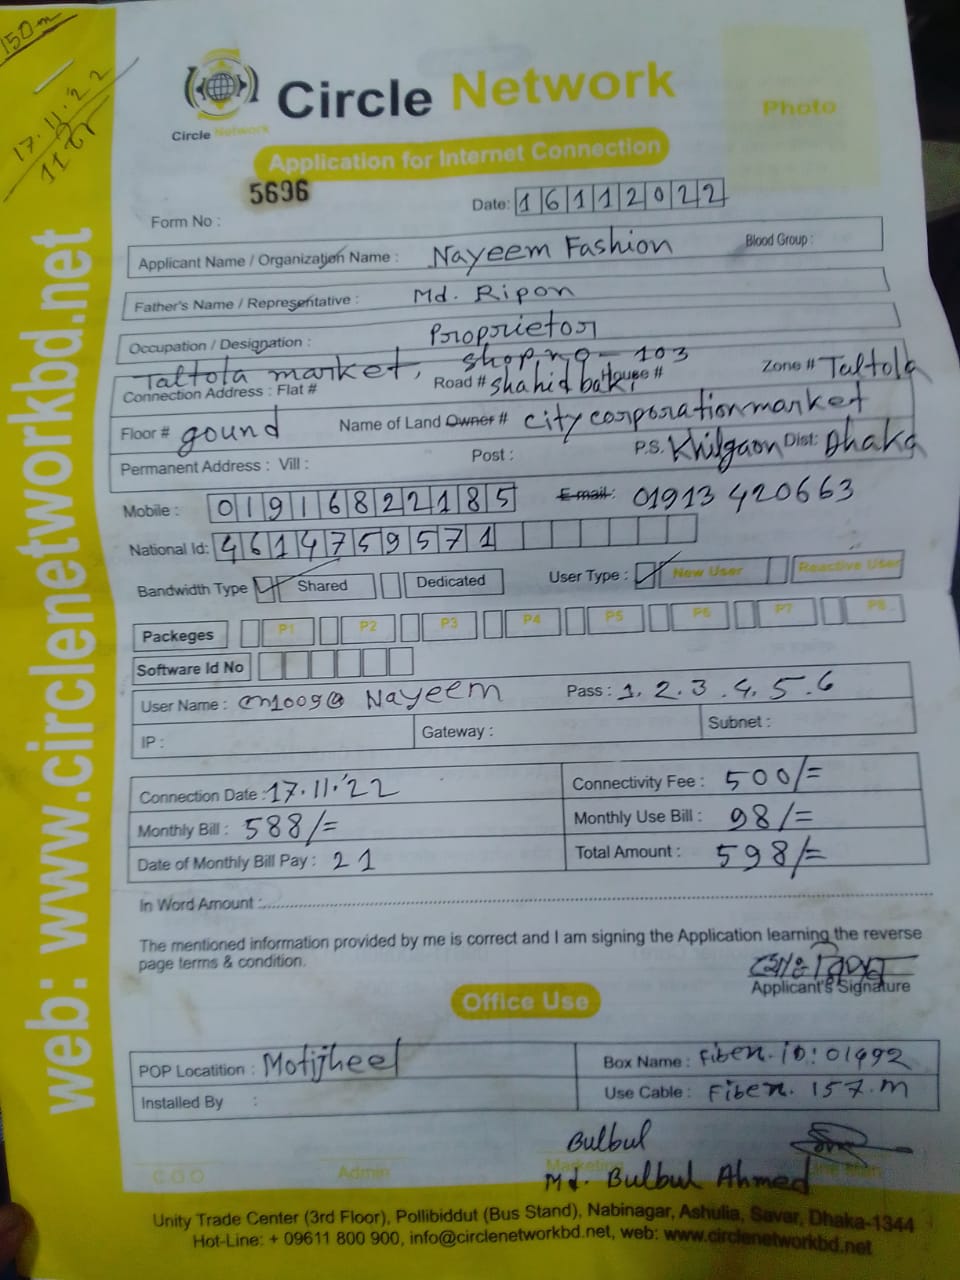 150m
17.11.'22
Circle Network
Circle Network
Photo
Application for Internet Connection
Form No : 5696
Date: 16112022
Applicant Name / Organization Name : Nayeem Fashion Blood Group :
Father's Name / Representative : Md. Ripon
Occupation / Designation : Proprietor
Taltola market, shop, no - 103
Connection Address : Flat # Road # shahid baki House # Zone # Taltola
Floor # gound Name of Land Owner # city corporation market
Permanent Address : Vill : Post : P.S. Khilgaon Dist: Dhaka
Mobile : 01916822185 E-mail: 01913420663
National Id: 4614759571
Bandwidth Type Shared Dedicated User Type : New User Reactive User
Packeges P1 P2 P3 P4 P5 P6 P7 P8
Software Id No
User Name : Nayeem Pass : 1.2.3.4.5.6
IP : Gateway : Subnet :
Connection Date : 17.11.'22 Connectivity Fee : 500/=
Monthly Bill : 588/= Monthly Use Bill : 98/=
Date of Monthly Bill Pay : 21 Total Amount : 598/=
In Word Amount :
The mentioned information provided by me is correct and I am signing the Application learning the reverse
page terms & condition.
Applicant's Signature
Office Use
POP Locatition : Motijheel Box Name : Fiben. iD: 01492
Installed By : Use Cable : Fiben. 157.m
Bulbul
C.O.O Admin Marketing
Md. Bulbul Ahmed
Unity Trade Center (3rd Floor), Pollibiddut (Bus Stand), Nabinagar, Ashulia, Savar, Dhaka-1344
Hot-Line: + 09611 800 900, info@circlenetworkbd.net, web: www.circlenetworkbd.net
web: www.circlenetworkbd.net